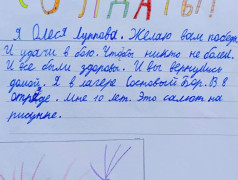 СОЛДАТЫ!
Я Олеся Луппова. Желаю вам победы.
И удачи в бою. Чтобы никто не болел.
И все были здоровы. И вы вернулись
домой. Я в лагере Сосновый Бор. В 3
отряде. Мне 10 лет. Это салют на
рисунке.